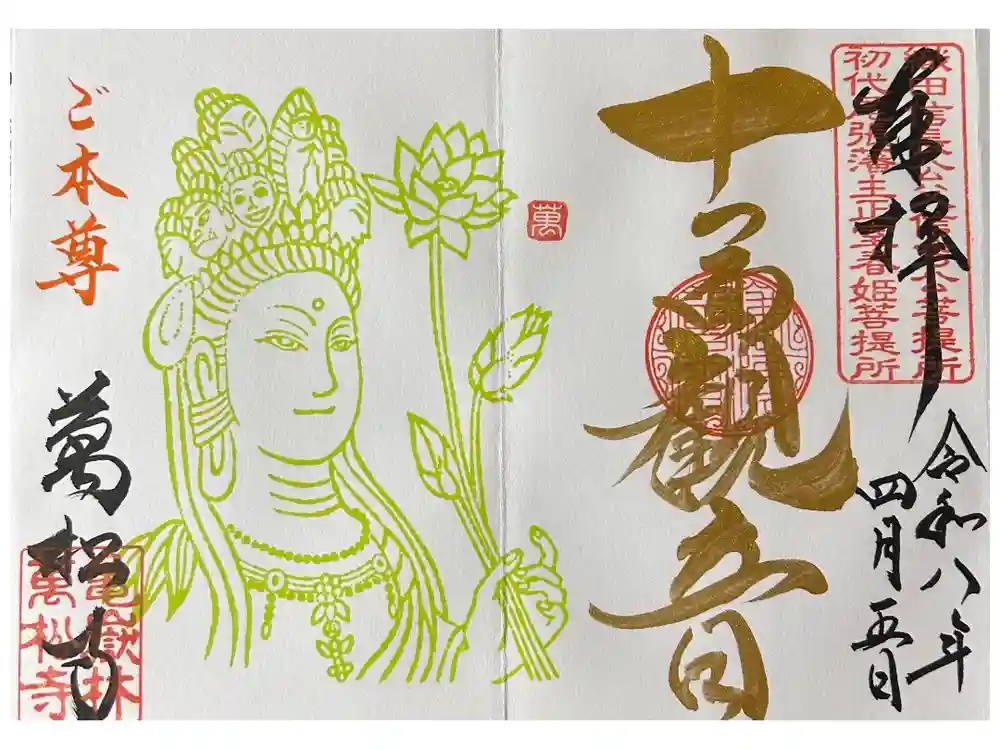 奉拝
織田信長公父信秀公菩提所
初代尾張藩主正室春姫菩提所
令和八年
四月五日
十一面観音
萬
ご本尊
萬松寺
亀嶽林
萬松寺